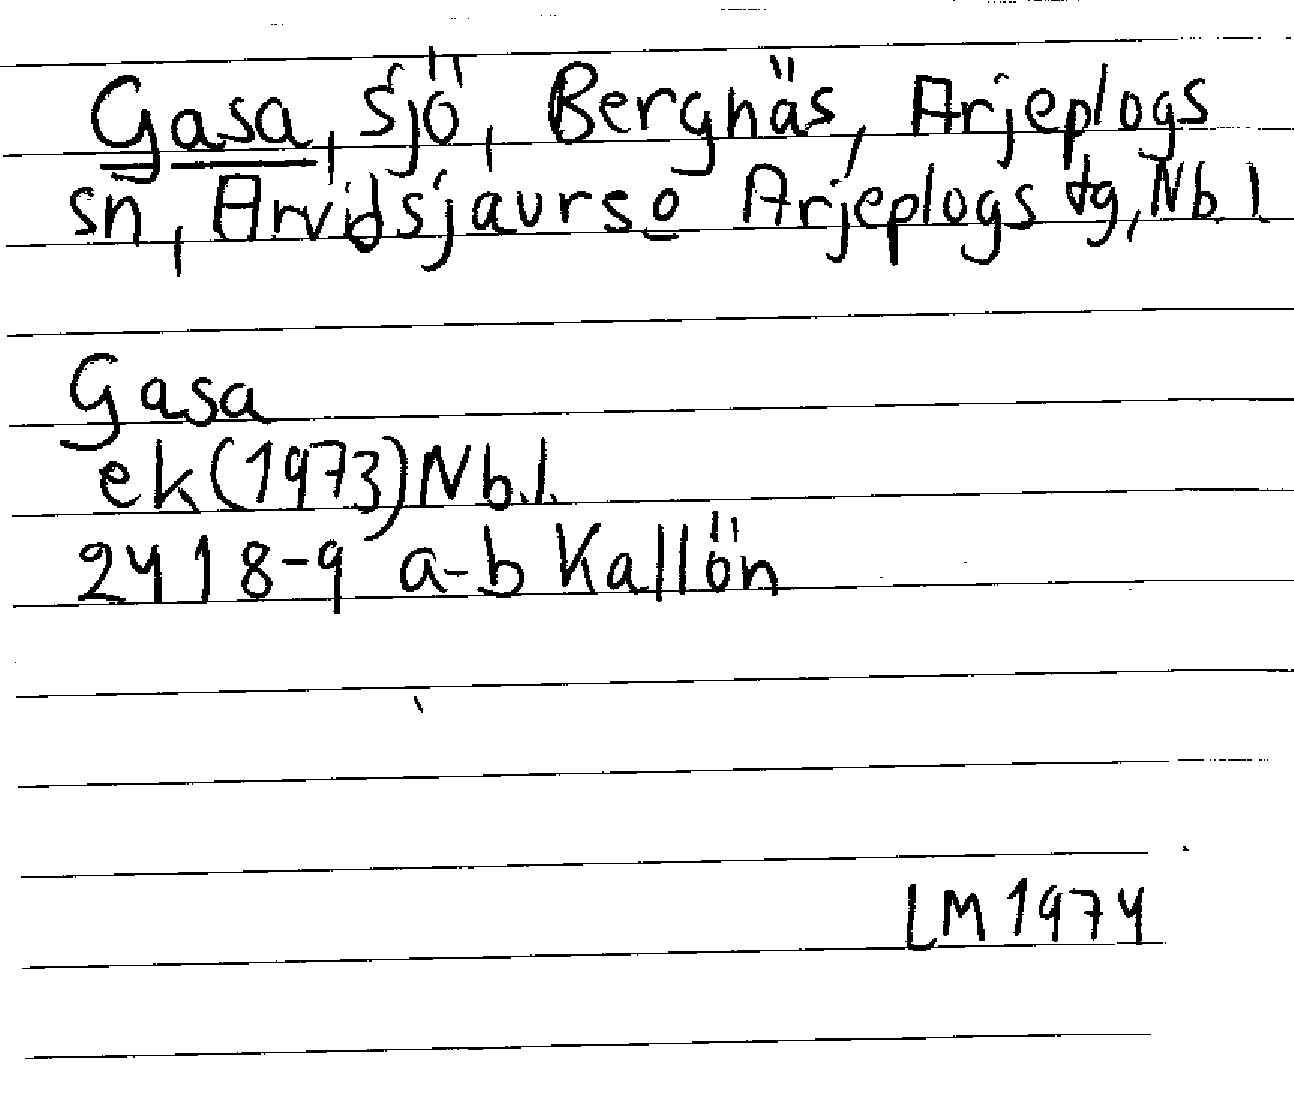 Gasa, sjö, Bergnäs, Arjeplogs
sn, Arvidsjaurs o Arjeplogs tg, Nb. l
Gasa
ek (1973) Nb.l.
2418-9 a-b Kallön
LM 1974